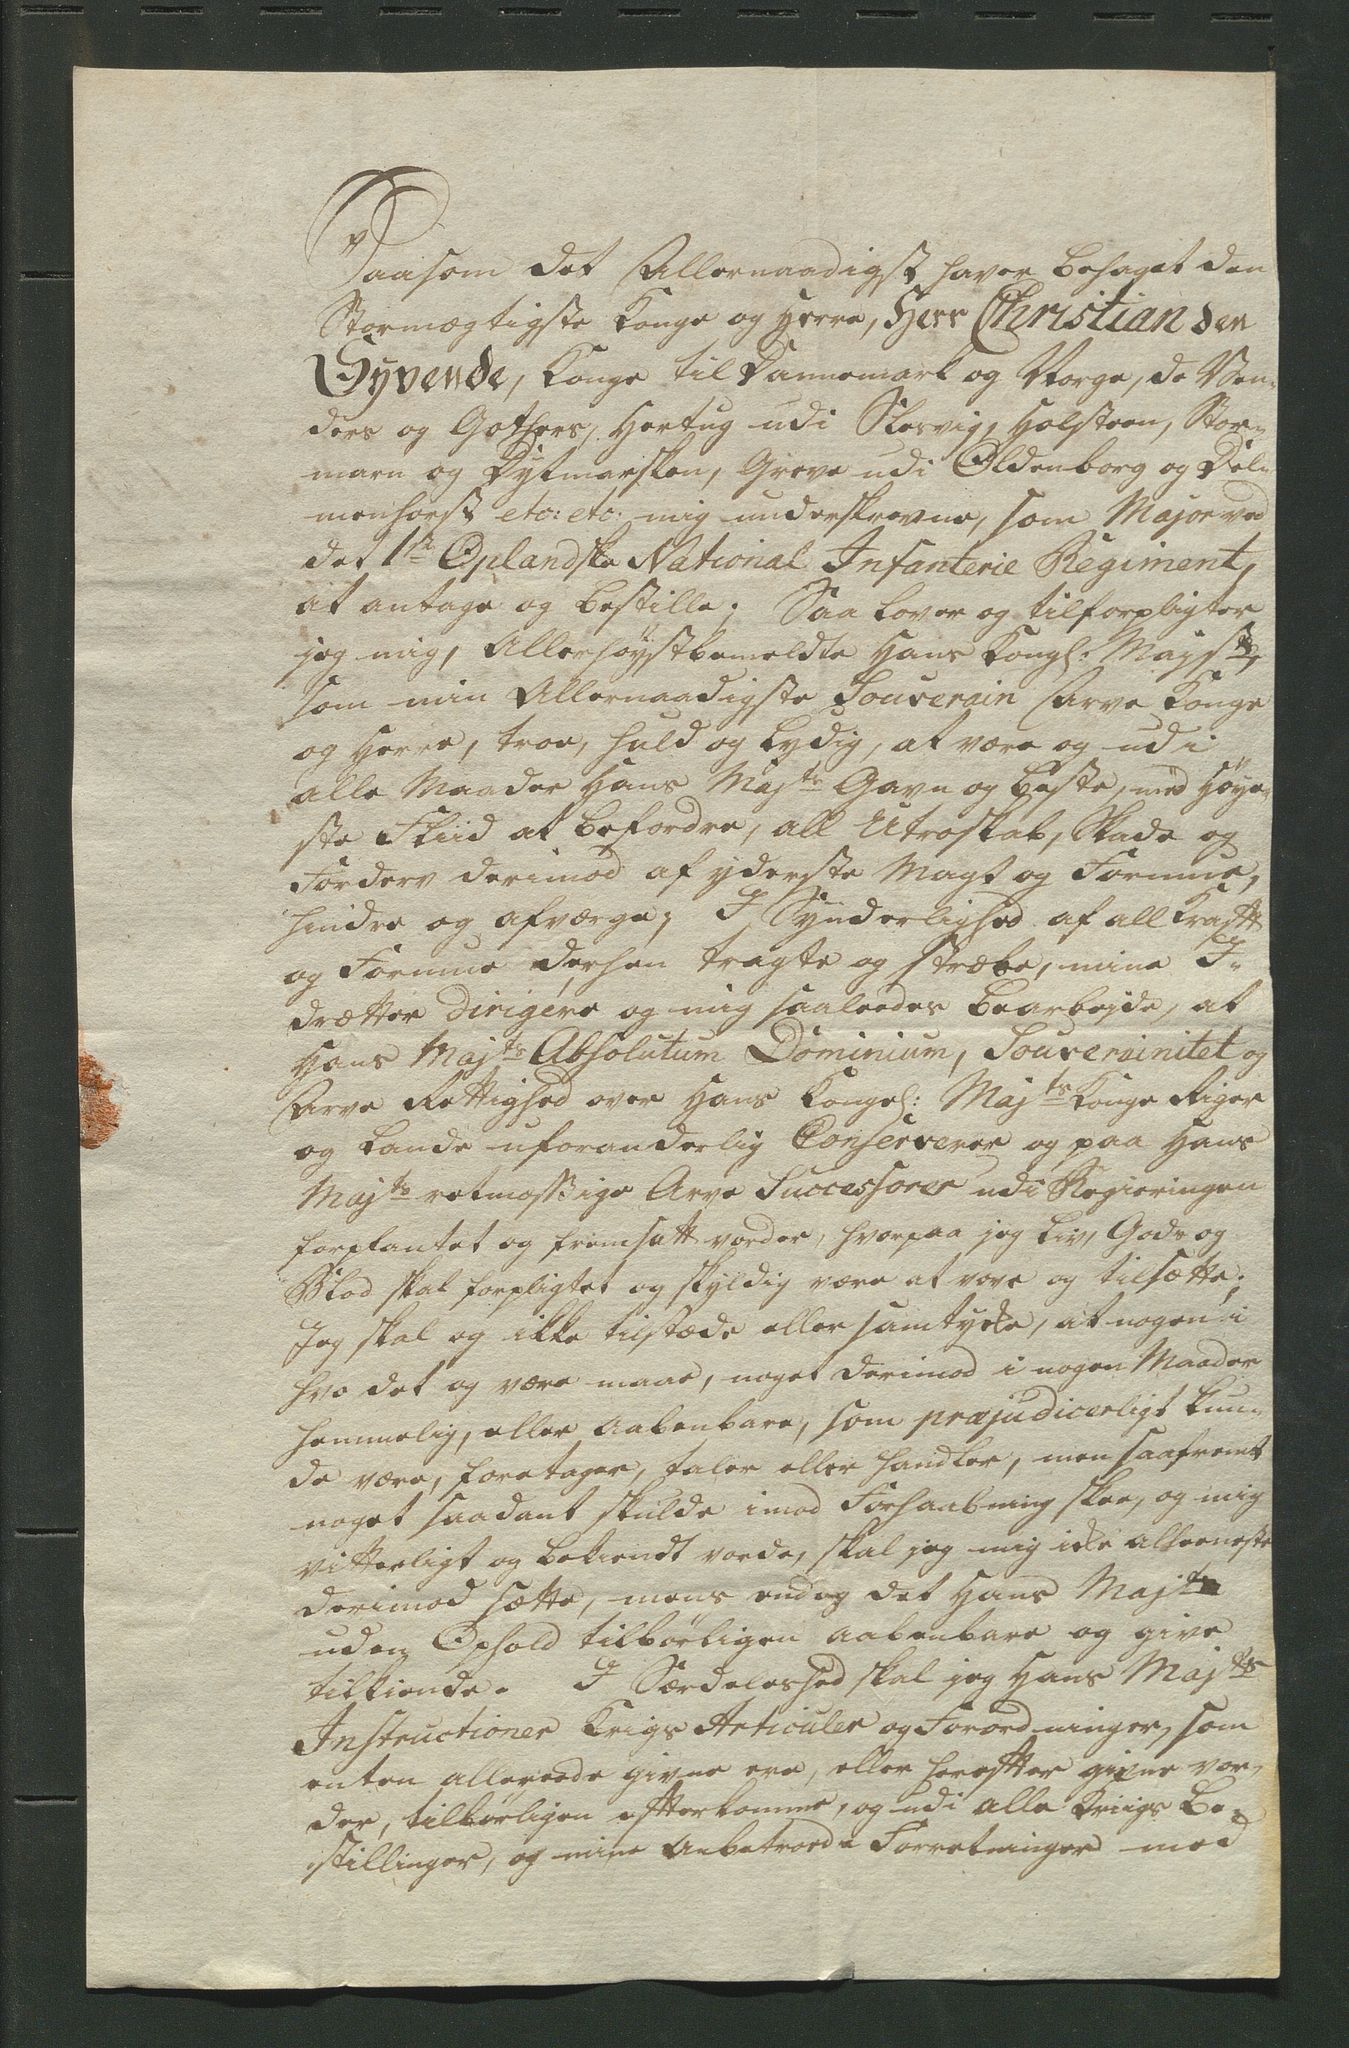 Saasom det Allernaadigst haver behaget den
Stormægtigste Konge og Herre, Herr Christian den
Syvende, Konge til Dannemark og Norge, de Ven-
ders og Gothers, Hertug udi Slesvig, Holsteen, Stor-
marn og Dytmarsken, Greve udi Oldenborg og Del-
menhorst etc: etc: mig underskrevne, som Major ved
det 1ste Oplandske National Infanterie Regiment,
at antage og bestille; Saa lover og tilforpligter
jeg mig, Allerhøystbemeldte Hans Kongl: Majsts,
som min Allernaadigste Souverain Arve Konge
og Herre, troe, huld og lydig, at være og udi
alle Maader Hans Majts Gavn og beste, med Høye-
ste Fliid at befordre, all Utroskab, Skade og
Forderv derimod af yderste Magt og Formue,
hindre og afværge; I Synderlighed af all Krafft
og Formue derhen tragte og stræbe, mine I-
drætter dirigere og mig saaleedes bearbejde, at
Hans Majts Absolutum Dominium, Souverainitet og
Arve Rettighed over Hans Kongel: Majts Konge Riger
og Lande uforanderlig Conserverer og paa Hans
Majts retmæssige Arve Successorer udi Regieringen
forplantet og fremsatt vorder, hvorpaa jeg Liv, Gods og
Blod skal forpligtet og skyldig være at vove og tilsætte;
Jeg skal og ikke tilstæde eller samtykke, at nogen i
hvo det og være maae, noget derimod i nogen Maader
hemmelig, eller Aabenbare, som præjudicerligt kun-
de være, foretager, taler eller handler, men saafremt
noget saadant skulde imod Forhaabning skee, og mig
vitterligt og bekiendt vorde, skal jeg mig ikke alleeneste
derimod sætte, mens endog det Hans Majts
uden Ophold tilbørligen aabenbare og give
tilkiende. I Særdeleshed skal jeg Hans Majts
Instructioner Krigs Articuler og Forordninger, som
enten allereede givne ere, eller herefter givne vor-
der, tilbørligen efterkomme, og udi alle Kriigs Be-
stillinger, og mine Anbetroede Forretninger med